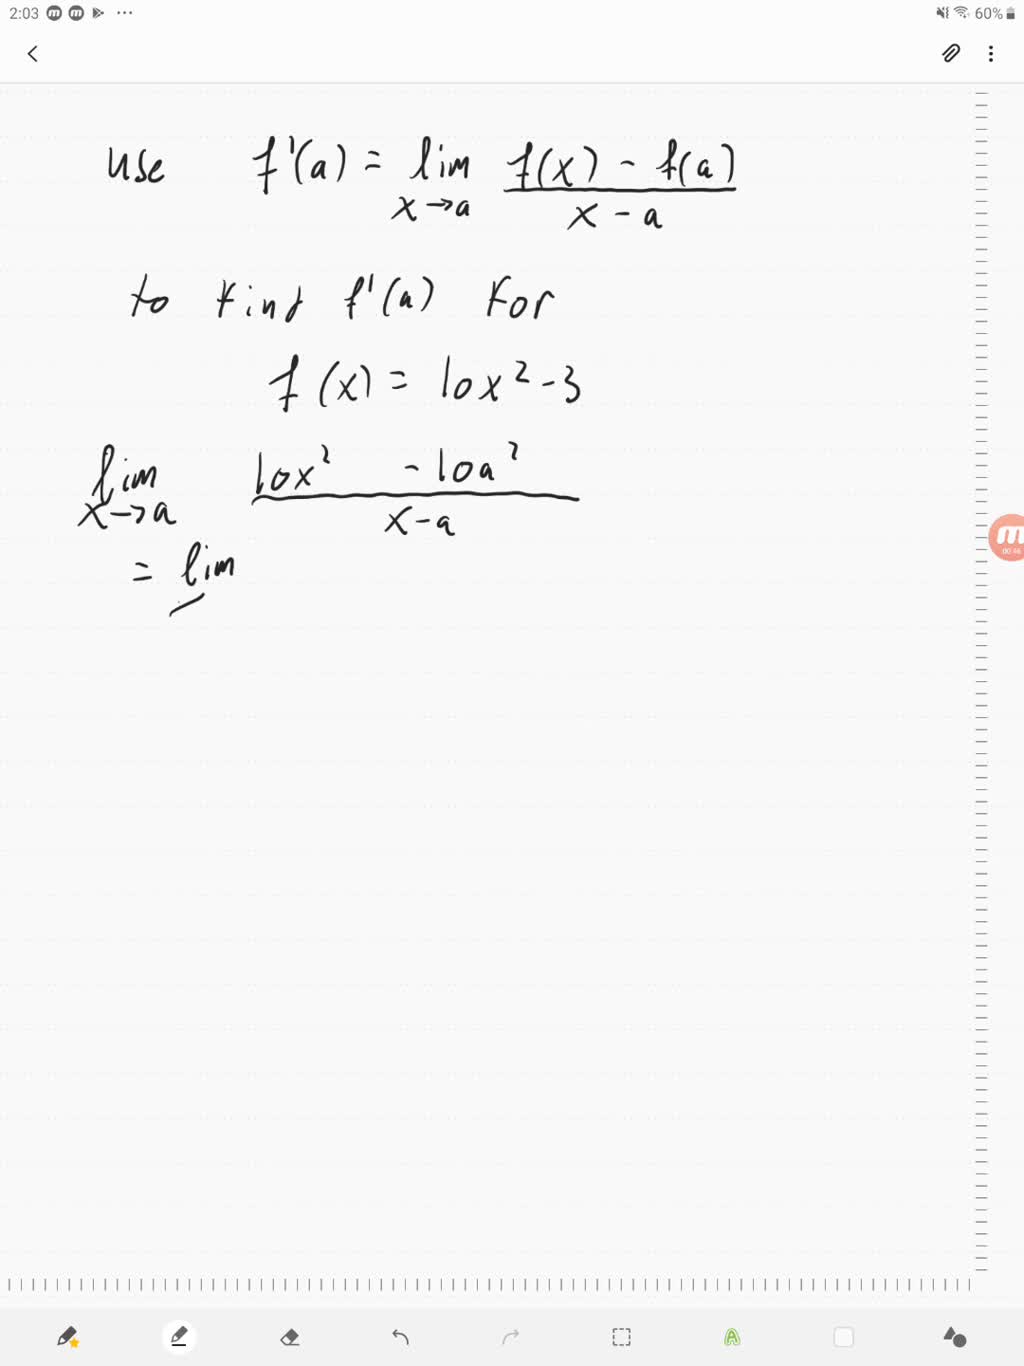 2:03 60%
Use f'(a) = lim x→a f(x) - f(a) / x - a
to find f'(a) For
f(x) = 10x² - 3
lim x→a 10x² - 10a² / x - a
= lim
00:46